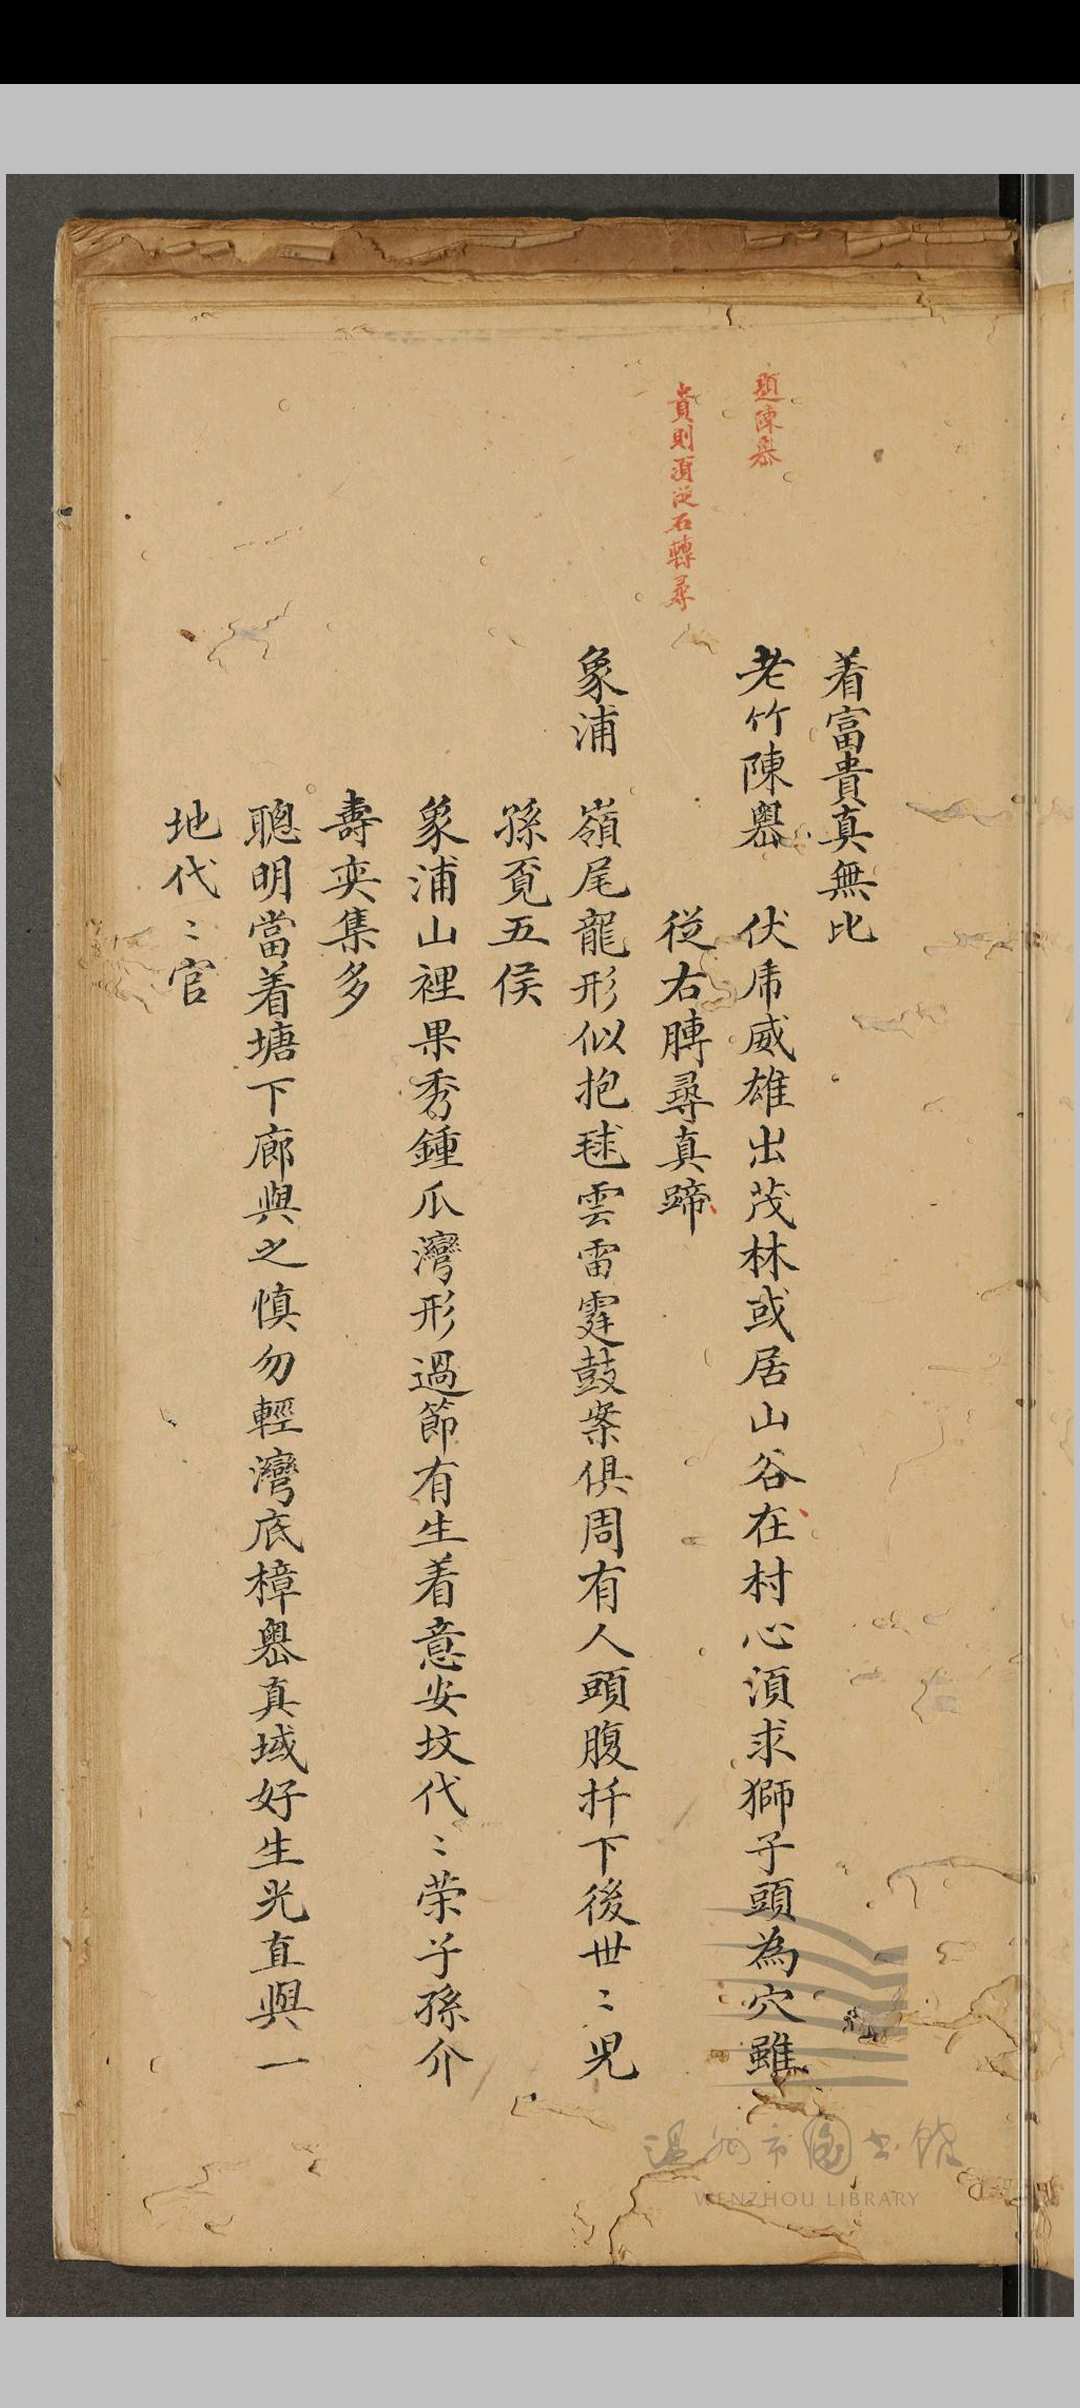 着富貴真無比
題陳嶴
老竹陳嶴　伏虎威雄出茂林或居山谷在村心須求獅子頭為穴雖
貴則須從右轉尋
從右膞尋真蹄
象浦　嶺尾龍形似抱毬雲雷霆鼓案俱周有人頭腹扦下後世〻兒
孫覓五侯
象浦山裡果秀鍾瓜灣形過節有生着意安坟代〻荣子孫介
壽奕集多
聰明當着塘下廊與之慎勿輕灣底樟嶴真域好生光直與一
地代〻官
温州市图书馆
WENZHOU LIBRARY